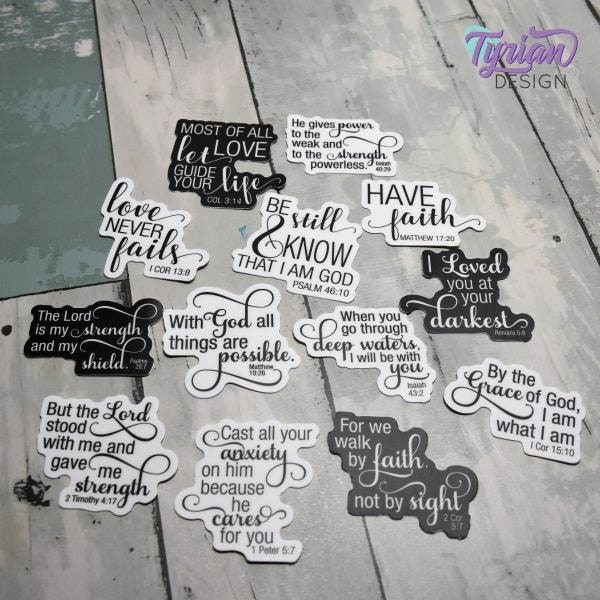 Tyrian
DESIGN
MOST OF ALL
let LOVE
GUIDE
YOUR life
COL 3:14
He gives power
to the
weak and
to the strength
powerless. Isaiah
40:29
love
NEVER
fails
I COR 13:8
BE still
& KNOW
THAT I AM GOD
PSALM 46:10
HAVE
faith
MATTHEW 17:20
I Loved
you at
your
darkest
Romans 5:8
The Lord
is my strength
and my
shield. Psalms
28:7
With God all
things are
possible.
Matthew
19:26
When you
go through
deep waters,
I will be with
you
Isaiah
43:2
By the
Grace of God,
I am
what I am
I Cor 15:10
But the Lord
stood
with me and
gave me
strength
2 Timothy 4:17
Cast all your
anxiety
on him
because
he
cares
for you
1 Peter 5:7
For we
walk
by faith,
not by sight
2 Cor
5:7